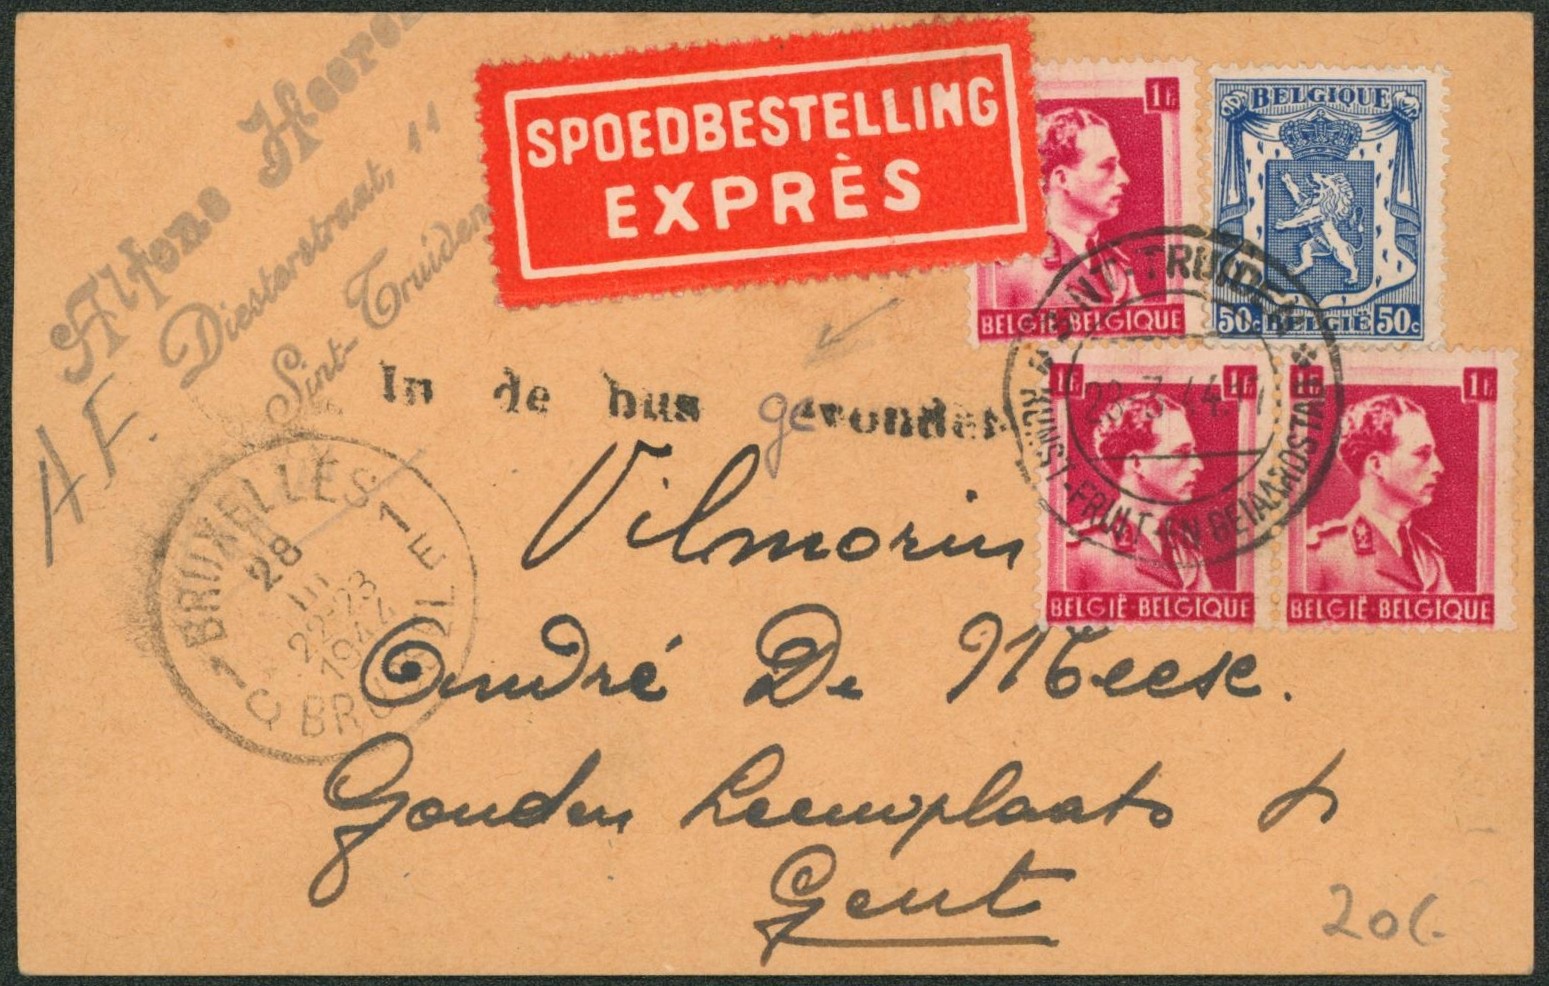 Alfons Heeren
Diesterstraat, 11
Sint-Truiden
A F.
SPOEDBESTELLING
EXPRÈS
1Fr
BELGIË-BELGIQUE
BELGIQUE
50c BELGIË 50c
1Fr 1Fr
BELGIË-BELGIQUE
1Fr
BELGIË-BELGIQUE
SINT-TRUIDEN
28-3 44
KUNST-FRUIT-EN
In de bus gevonden
BRUXELLES 1
28
III
22-23
1944
1 C BRUSSEL E
Vilmorin
André De Meese.
Gouden Leeuwplaats
Gent
20/-